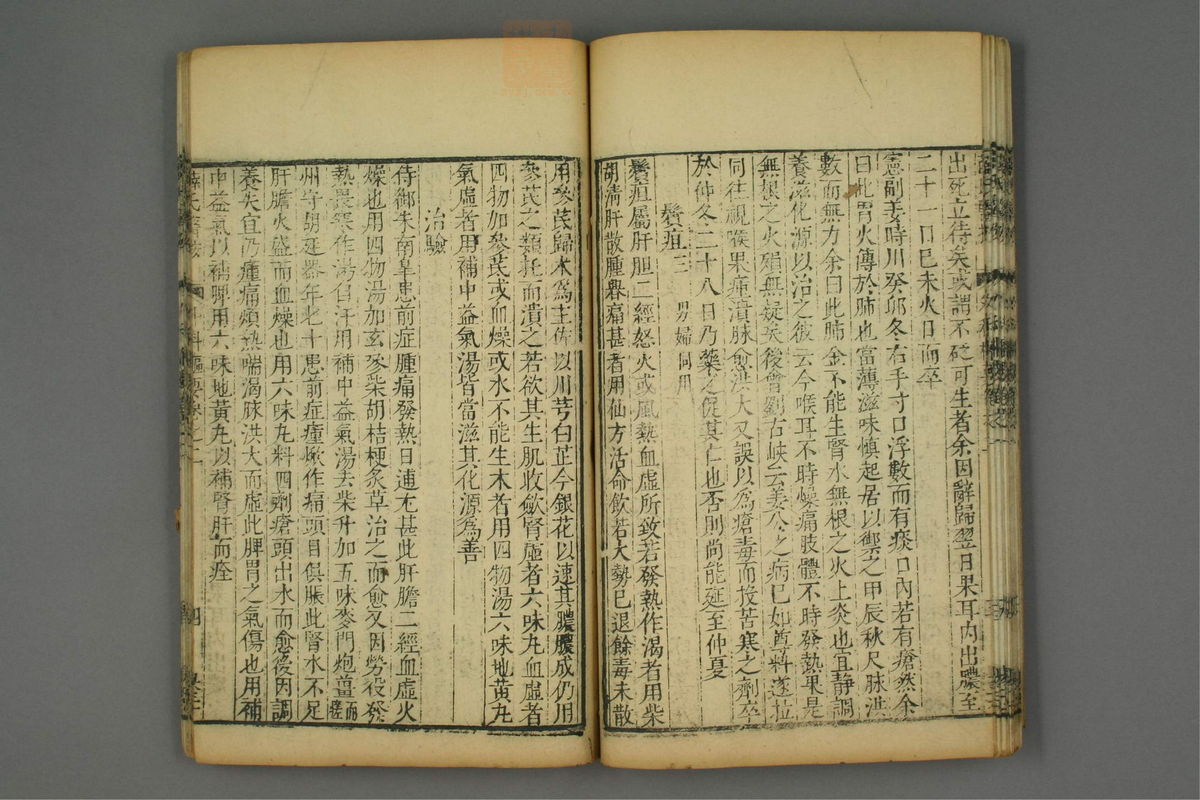 出死立待矣或謂不砭可生者余因辭歸翌日果耳內出膿至
二十一日己未火日而卒
憲副姜時川癸卯冬右手寸口浮數而有痰口內若有瘡然余
曰此胃火傳於肺也當薄滋味慎起居以禦之甲辰秋尺脉洪
數而無力余曰此肺金不能生腎水無根之火上炎也宜靜調
養滋化源以治之彼云今喉耳不時燥痛肢體不時發熱果是
無根之火殞無疑矣後會劉古峽云姜公之病已如尊料遂拉
同往視喉果腫潰脉愈洪大又誤以為瘡毒而投苦寒之劑卒
於仲冬二十八日乃藥之促其亡也否則尚能延至仲夏
鬢疽三 男婦同用
鬢疽屬肝胆二經怒火或風熱血虛所致若發熱作渴者用柴
胡清肝散腫焮痛甚者用仙方活命飲若大勢已退餘毒未散
用參芪歸朮為主佐以川芎白芷今銀花以速其膿膿成仍用
參芪之類托而潰之若欲其生肌收歛腎虛者六味丸血虛者
四物加參芪或血燥或水不能生木者用四物湯六味地黄丸
氣虛者用補中益氣湯皆當滋其化源為善
治驗
侍御朱南皐患前症腫痛發熱日逋尤甚此肝膽二經血虛火
燥也用四物湯加玄參柴胡桔梗炙草治之而愈又因勞役發
熱畏寒作渴自汗用補中益氣湯去柴升加五味麥門炮薑而瘥
州守胡廷器年七十患前症腫焮作痛頭目俱脹此腎水不足
肝膽火盛而血燥也用六味丸料四劑瘡頭出水而愈後因調
養失宜仍腫痛煩熱喘渴脉洪大而虛此脾胃之氣傷也用補
中益氣以補脾用六味地黃丸以補腎肝而痊